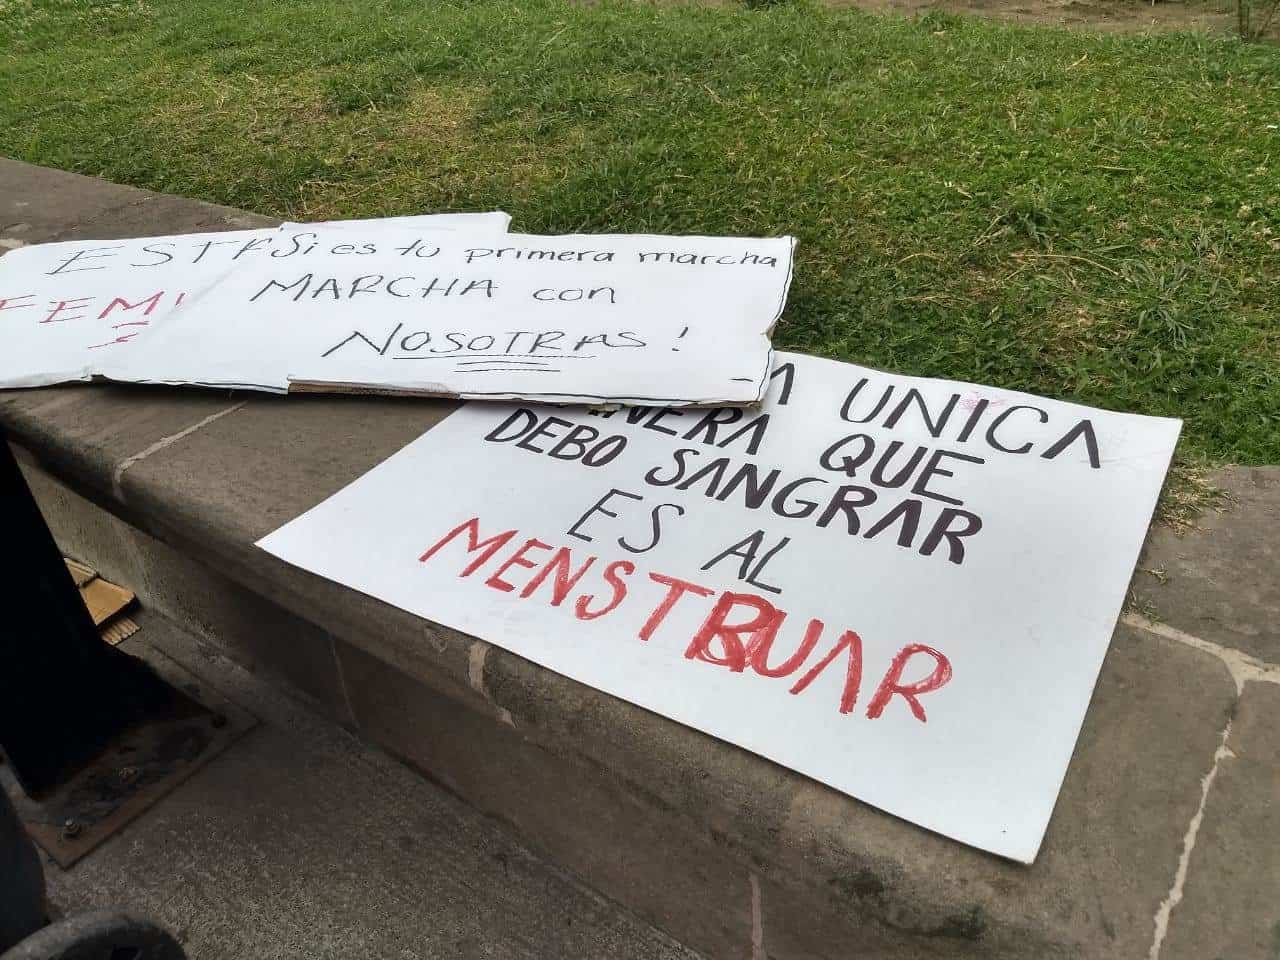 EST
FEM
Si es tu primera marcha
MARCHA con
NOSOTRAS!
A UNICA
NERA QUE
DEBO SANGRAR
ES AL
MENSTRUAR